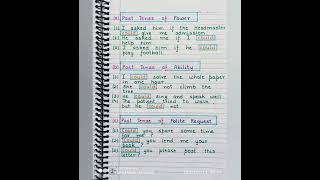 (a) Past Tense of Power
(1) I asked him if the Headmaster
could give me admission.
(2) He asked me if I could
help him.
(3) I asked him if he could
play football.
(b) Past Tense of Ability
(1) I could solve the whole paper
in one hour.
(2) She could not climb the
tree.
(3) He could sing and speak well.
(4) The patient tried to walk
but he could not.
(c) Past Tense of Polite Request
(1) Could you spare some time
for me?
(2) Could you lend me your
book?
(3) Could you please post this
letter?